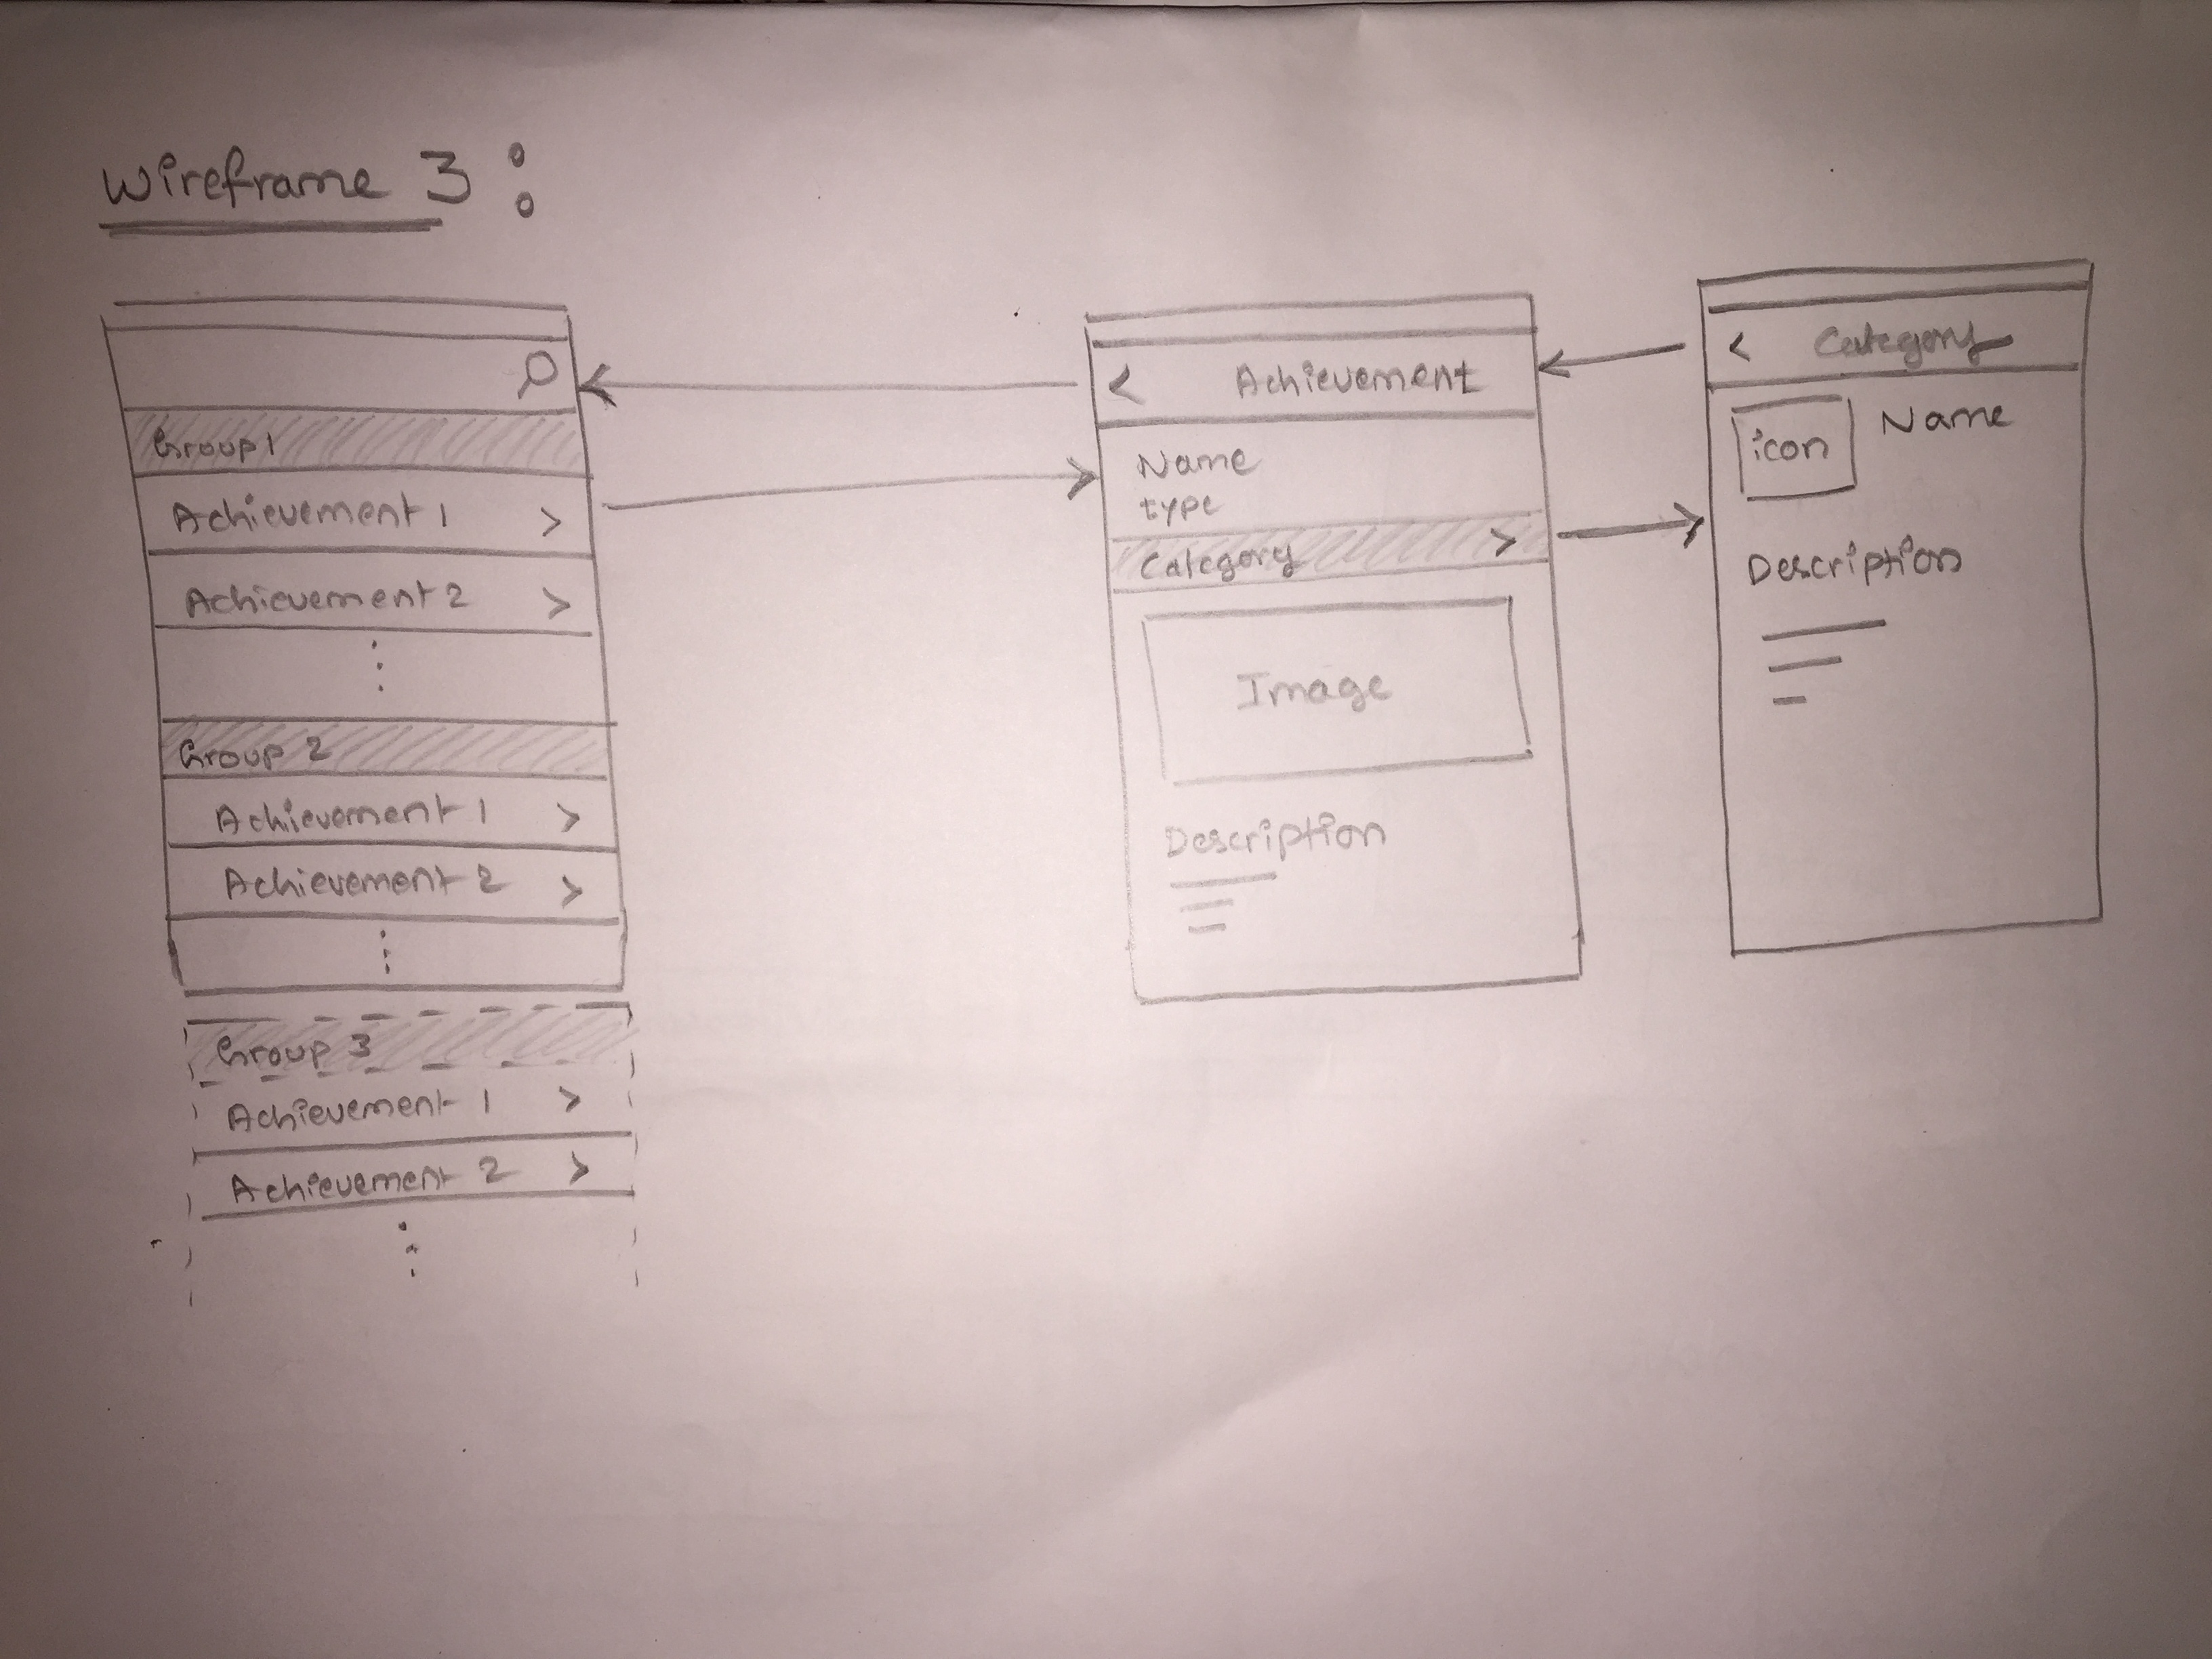 Wireframe 3 :
Group 1
Achievement 1 >
Achievement 2 >
Group 2
Achievement 1 >
Achievement 2 >
Group 3
Achievement 1 >
Achievement 2 >
< Achievement
Name
type
Category >
Image
Description
< Category
icon Name
Description